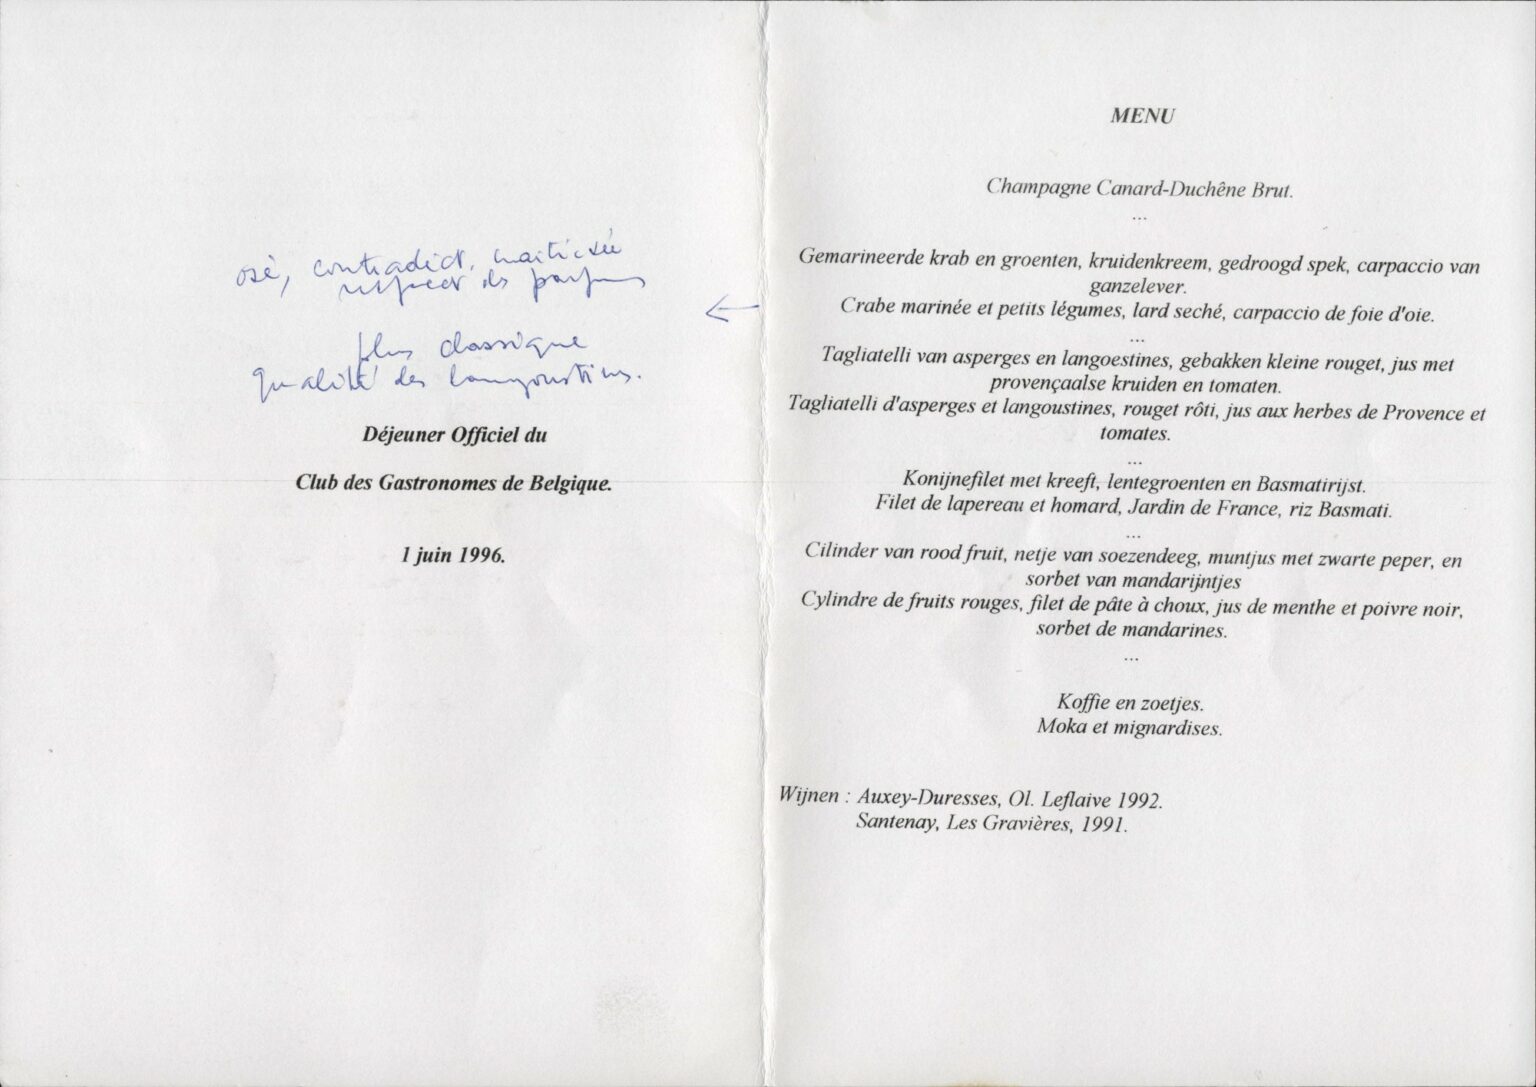 osé, contradict, maîtrisée
respect des parfums
plus classique
Qualité des langoustines.
Déjeuner Officiel du
Club des Gastronomes de Belgique.
1 juin 1996.
MENU
Champagne Canard-Duchêne Brut.
...
Gemarineerde krab en groenten, kruidenkreem, gedroogd spek, carpaccio van
ganzelever.
Crabe marinée et petits légumes, lard seché, carpaccio de foie d'oie.
...
Tagliatelli van asperges en langoestines, gebakken kleine rouget, jus met
provençaalse kruiden en tomaten.
Tagliatelli d'asperges et langoustines, rouget rôti, jus aux herbes de Provence et
tomates.
...
Konijnefilet met kreeft, lentegroenten en Basmatirijst.
Filet de lapereau et homard, Jardin de France, riz Basmati.
...
Cilinder van rood fruit, netje van soezendeeg, muntjus met zwarte peper, en
sorbet van mandarijntjes
Cylindre de fruits rouges, filet de pâte à choux, jus de menthe et poivre noir,
sorbet de mandarines.
...
Koffie en zoetjes.
Moka et mignardises.
Wijnen : Auxey-Duresses, Ol. Leflaive 1992.
Santenay, Les Gravières, 1991.